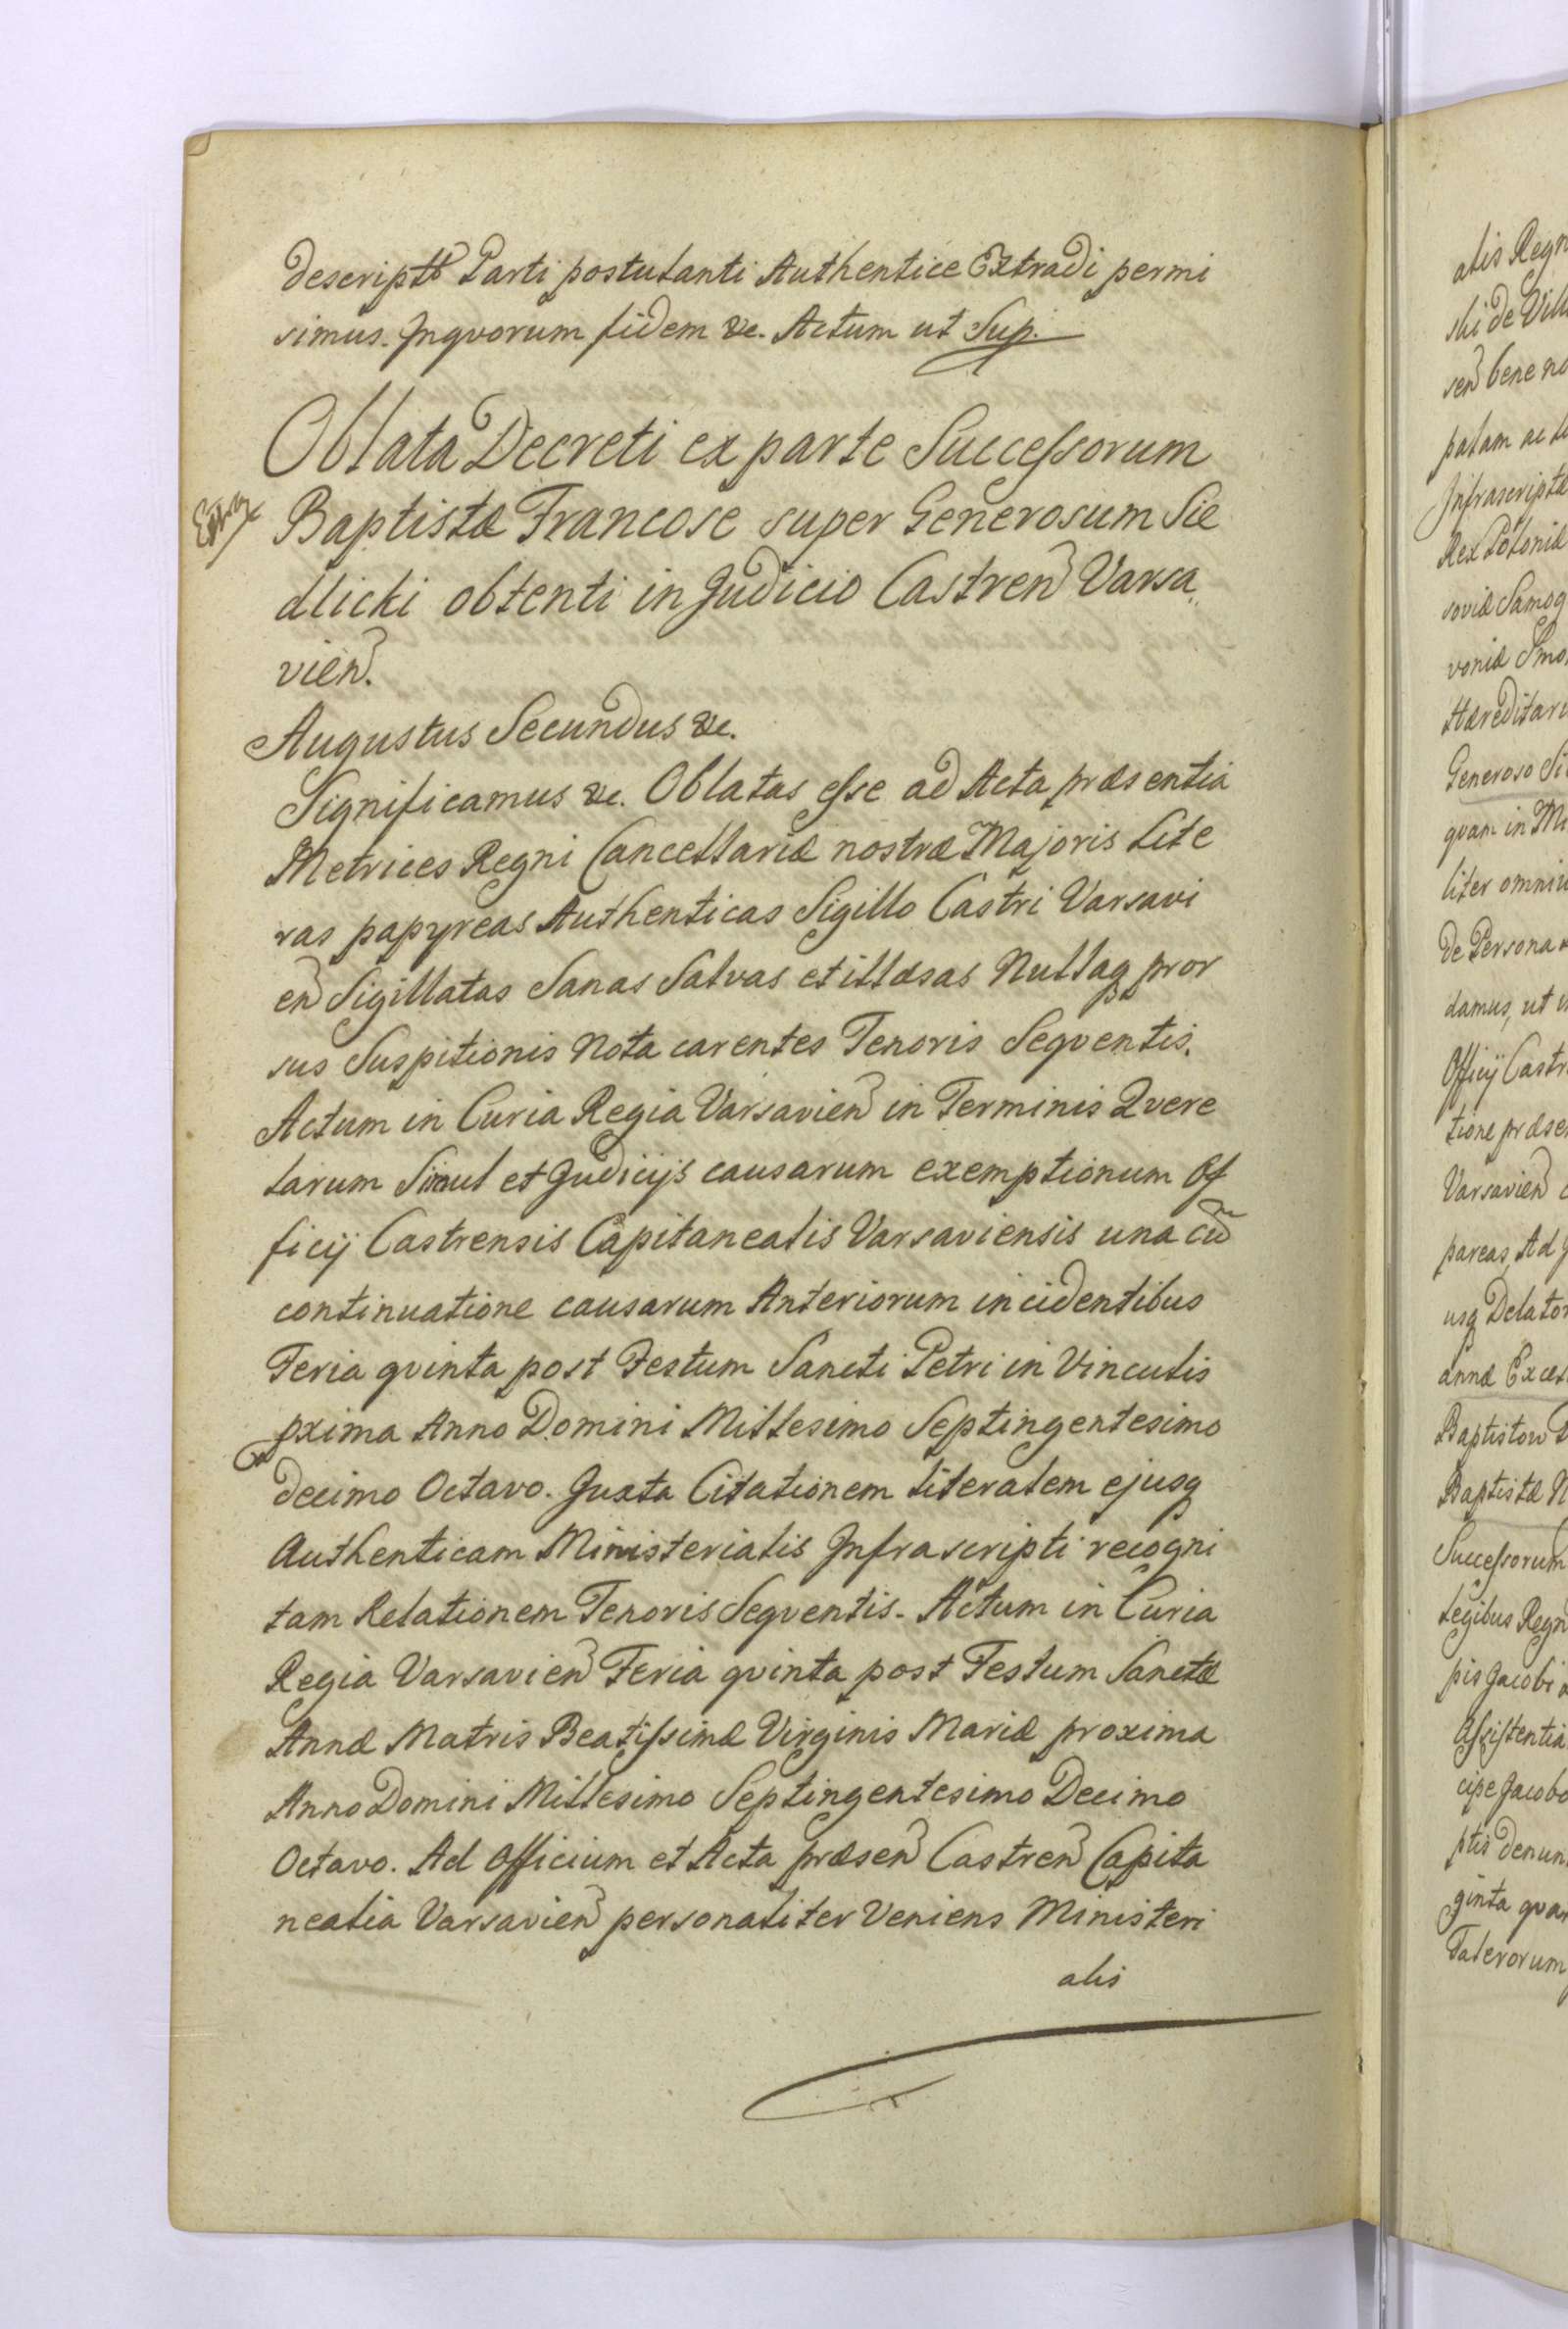 descriptis Parti postulanti Authentice Extradi permi
simus. Inqvorum fidem &c. Actum ut Sup.
Oblata Decreti ex parte Successorum
Baptistæ Francose super Generosum Sie
dlicki obtenti in Judicio Castren Varsa
vien.
Augustus Secundus &c.
Significamus &c. Oblatas esse ad Acta præsentia
Metrices Regni Cancellariæ nostræ Majoris Lite
ras papyreas Authenticas Sigillo Castri Varsavi
en Sigillatas Sanas Salvas et illæsas Nullaq pror
sus Suspitionis Nota carentes Tenoris Seqventis.
Actum in Curia Regia Varsavien in Terminis Qvere
larum Simul et Judicijs causarum exemptionum Of
ficij Castrensis Capitanealis Varsaviensis una cũ
continuatione causarum Anteriorum incidentibus
Feria qvinta post Festum Sancti Petri in Vinculis
pxima Anno Domini Millesimo Septingentesimo
decimo Octavo. Juxta Citationem literalem ejusq
Authenticam Ministerialis Infrascripti recogni
tam Relationem Tenoris Seqventis. Actum in Curia
Regia Varsavien Feria qvinta post Festum Sanctæ
Annæ Matris Beatissimæ Virginis Mariæ proxima
Anno Domini Millesimo Septingentesimo Decimo
Octavo. Ad Officium et Acta præsen Castren Capita
nealia Varsavien personaliter Veniens Ministeri
alis
alis Regn
ski de Vill
sen bene no
palam ac
Infrascriptæ
Rex Poloniæ
soviæ Samog
voniæ Smo
Hæreditari
Generoso Si
qvam in
liter omniu
de Persona
damus, ut
Officij Castr
tione præse
Varsavien
pareas, Ad
usq Delator
annæ
Baptistow
Baptistæ
Successorum
Legibus Regn
pis Jacobi
Assistentia
cipe Jacobo
ptis denun
ginta qva
Talerorum